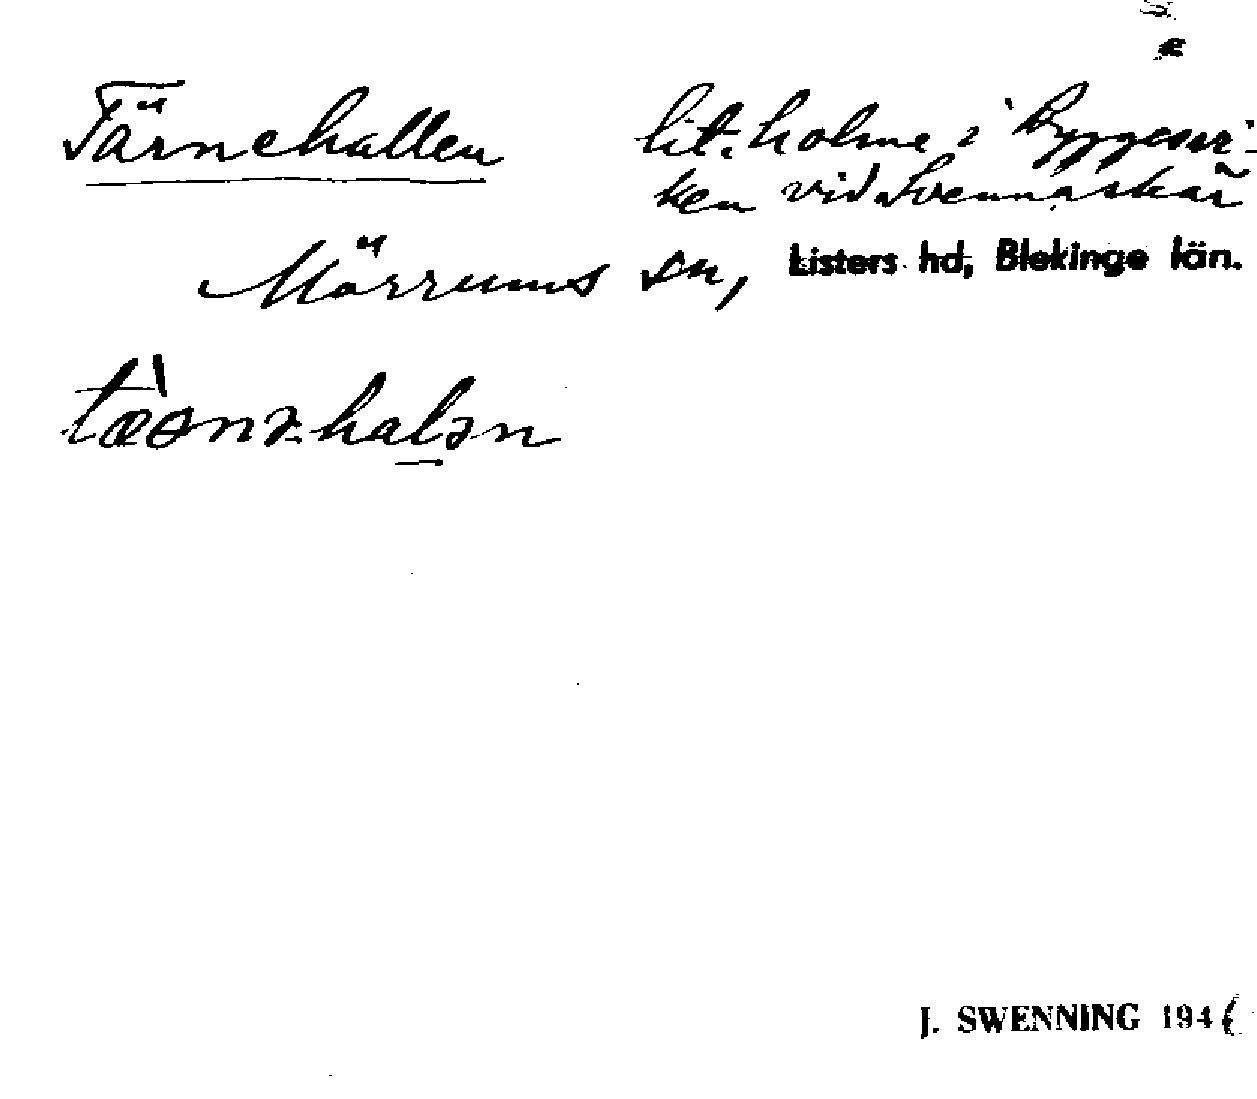 Tärnehallen lit. holme i Byggesvi-
ken vid Svennaskär
Mörrums sn, Listers hd, Blekinge län.
tæ̀ənəhalən
J. SWENNING 194